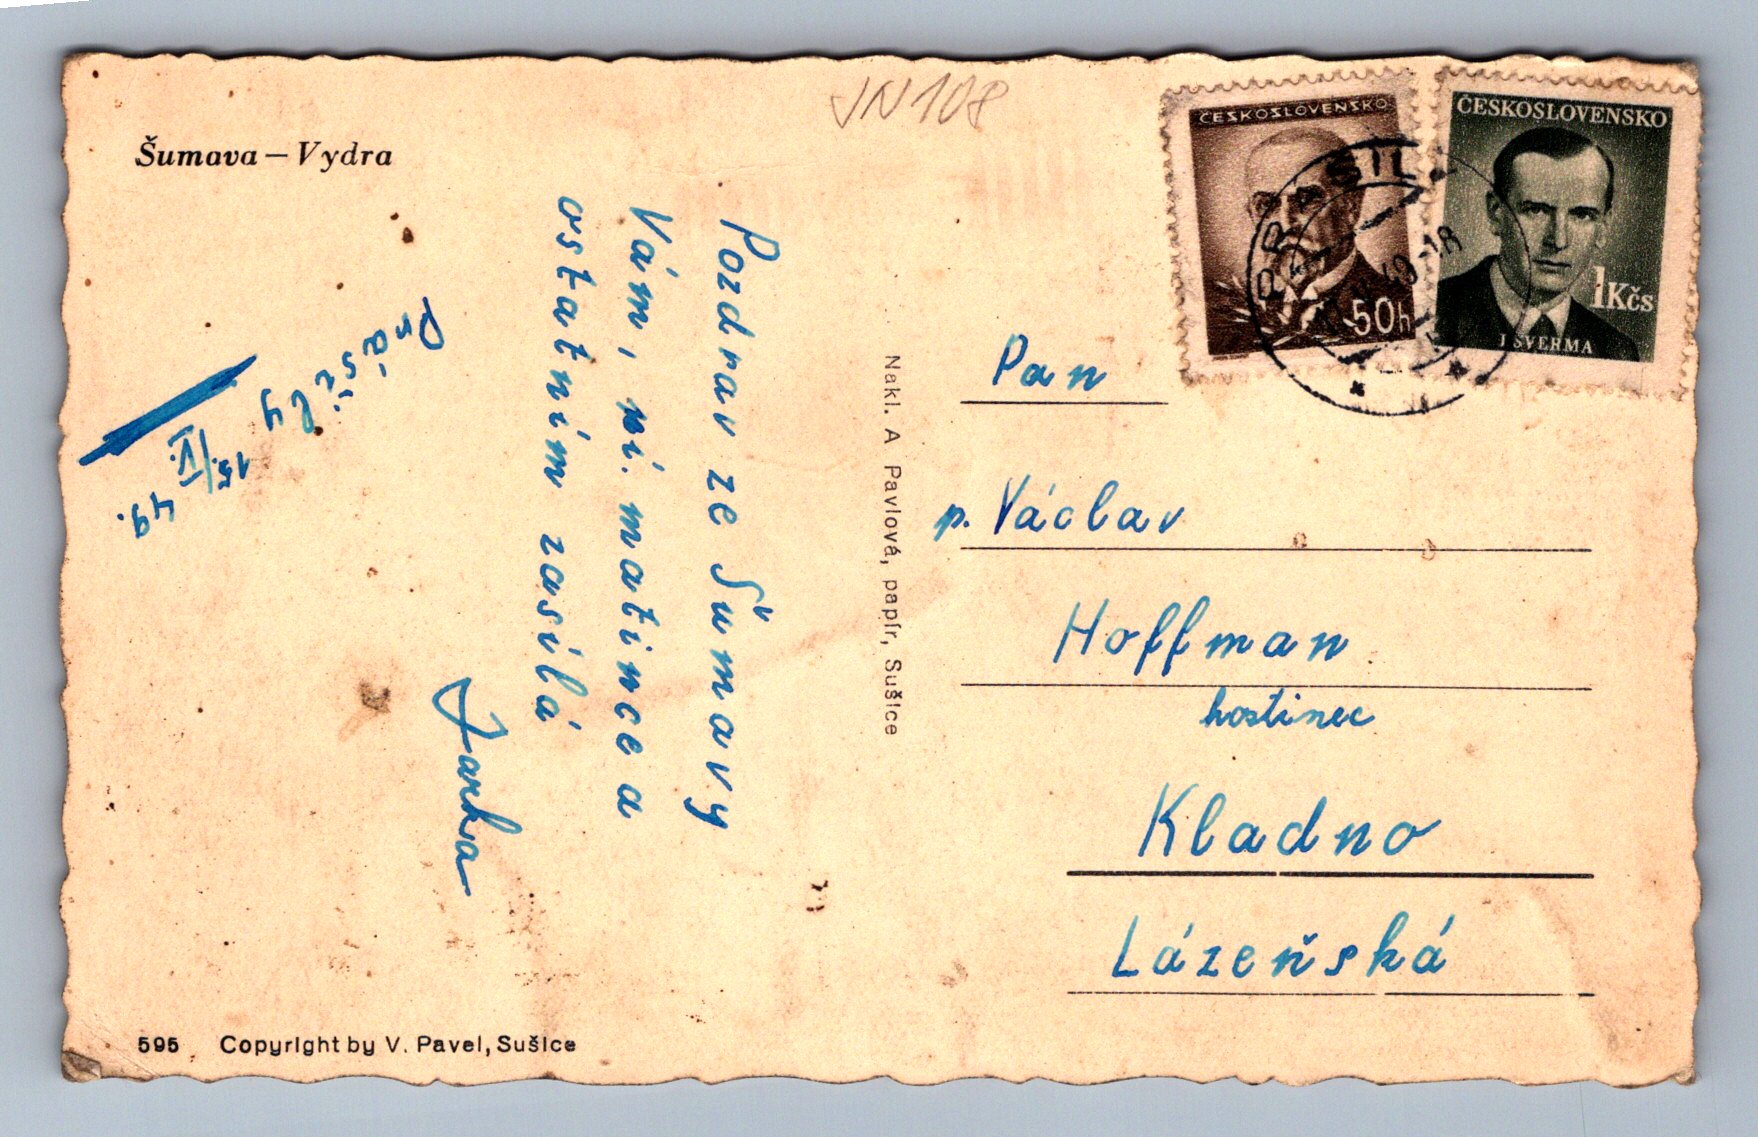 JN 108
Šumava – Vydra
ČESKOSLOVENSKO
50h
ČESKOSLOVENSKO
1Kčs
J ŠVERMA
PRÁŠILY
49-18
Prášily
15./IV.
49.
Pozdrav ze Šumavy
Vám, pí. matince a
ostatním zasílá
Jarka
Nakl. A Pavlová, papír, Sušice
Pan
p. Václav
Hoffman
hostinec
Kladno
Lázeňská
595 Copyright by V. Pavel, Sušice